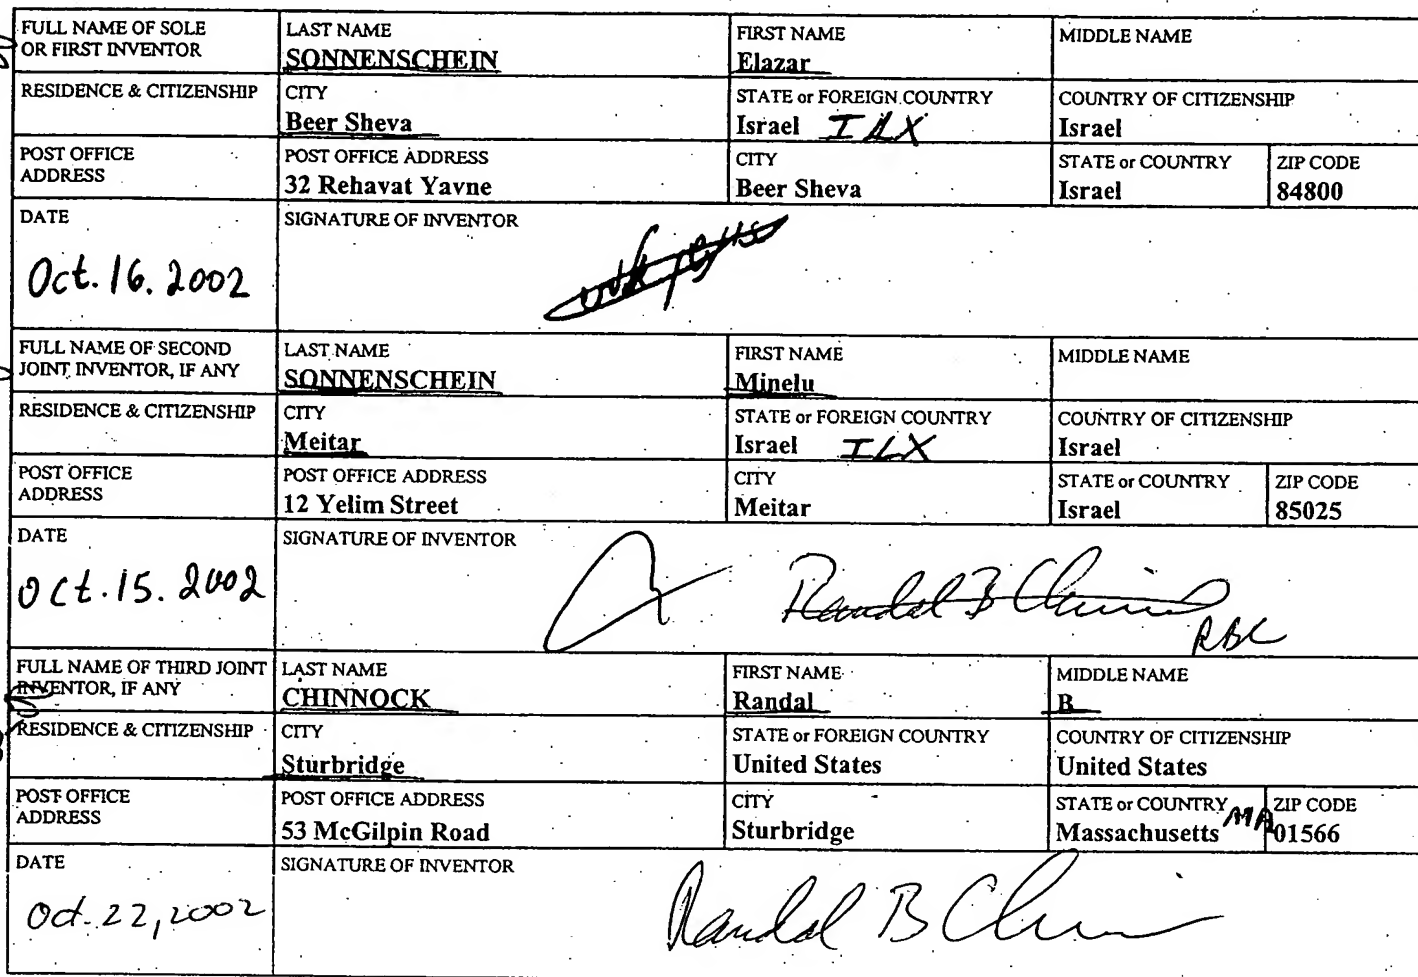 FULL NAME OF SOLE OR FIRST INVENTOR LAST NAME SONNENSCHEIN FIRST NAME Elazar MIDDLE NAME
RESIDENCE & CITIZENSHIP CITY Beer Sheva STATE or FOREIGN COUNTRY Israel ILX COUNTRY OF CITIZENSHIP Israel
POST OFFICE ADDRESS POST OFFICE ADDRESS 32 Rehavat Yavne CITY Beer Sheva STATE or COUNTRY Israel ZIP CODE 84800
DATE Oct. 16. 2002 SIGNATURE OF INVENTOR
FULL NAME OF SECOND JOINT INVENTOR, IF ANY LAST NAME SONNENSCHEIN FIRST NAME Minelu MIDDLE NAME
RESIDENCE & CITIZENSHIP CITY Meitar STATE or FOREIGN COUNTRY Israel ILX COUNTRY OF CITIZENSHIP Israel
POST OFFICE ADDRESS POST OFFICE ADDRESS 12 Yelim Street CITY Meitar STATE or COUNTRY Israel ZIP CODE 85025
DATE Oct. 15. 2002 SIGNATURE OF INVENTOR Randal B Chinnock RBC
FULL NAME OF THIRD JOINT INVENTOR, IF ANY LAST NAME CHINNOCK FIRST NAME Randal MIDDLE NAME B
RESIDENCE & CITIZENSHIP CITY Sturbridge STATE or FOREIGN COUNTRY United States COUNTRY OF CITIZENSHIP United States
POST OFFICE ADDRESS POST OFFICE ADDRESS 53 McGilpin Road CITY Sturbridge STATE or COUNTRY Massachusetts MA ZIP CODE 01566
DATE Oct. 22, 2002 SIGNATURE OF INVENTOR Randal B Chinnock